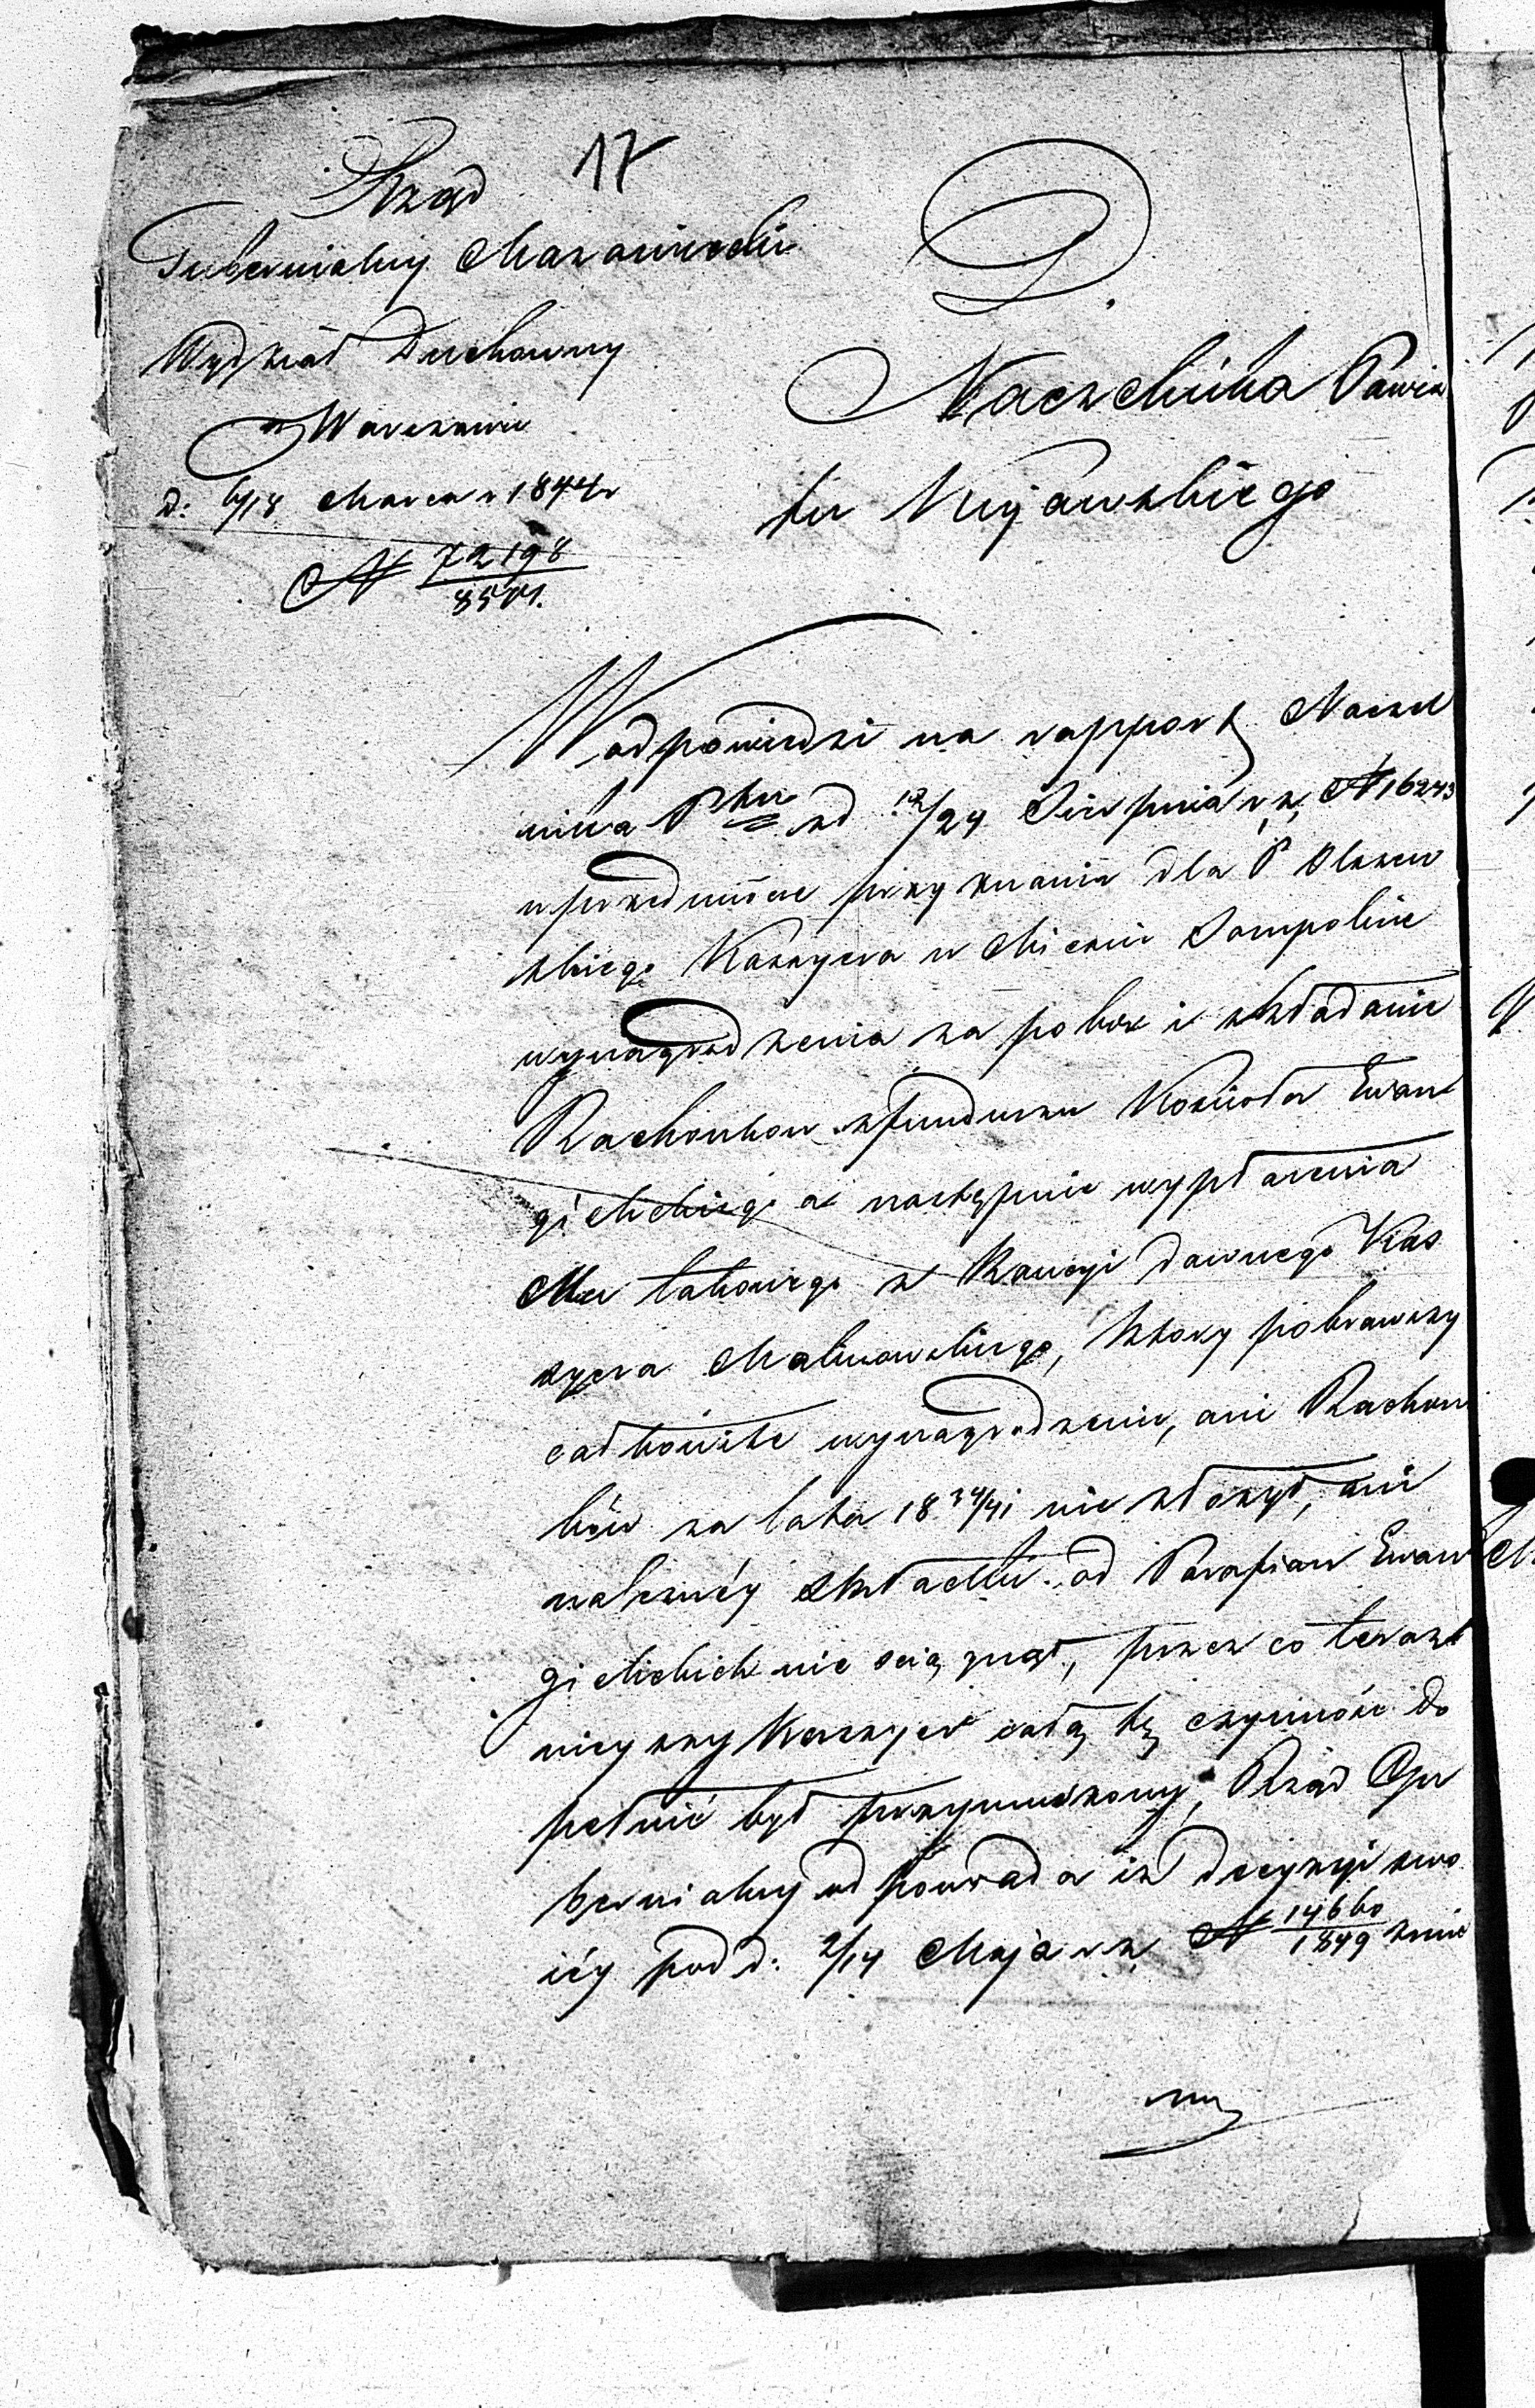 17
Rząd
Gubernialny Mazowiecki
Wydział Duchowny
w Warszawie
d: 6/18 Marca r 1844 r
N 72198/8571.
D.
Naczelnika Powia
tu Kujawskiego
W odpowiedzi na rapport Naczel
nika Ptu z d 12/24 Sierpnia r. z. N 16243
w przedmiocie przyznania dla P Olszew
skiego Kassyera w Mieście Sompolnie
wynagrodzenia za pobór i składanie
Rachunków z funduszu Kościoła Ewan
gielickiego a następnie wypłacenia
Mu takowego z Kaucyi dawnego Kas
syera Malinowskiego, który pobrawszy
całkowite wynagrodzenie, ani Rachun
ków za lata 18 34/41 nie złożył, ani
należnéy składki od Parafian Ewan
gielickich nie ściągnął, przez co teraz
nieyszy Kassyer całą tę czynność do
pełnić był przymuszony, Rząd Gu
bernialny odpowiada iż decyzyi swo
iéy pod d: 2/14 Maja r. z. N 14660/1849